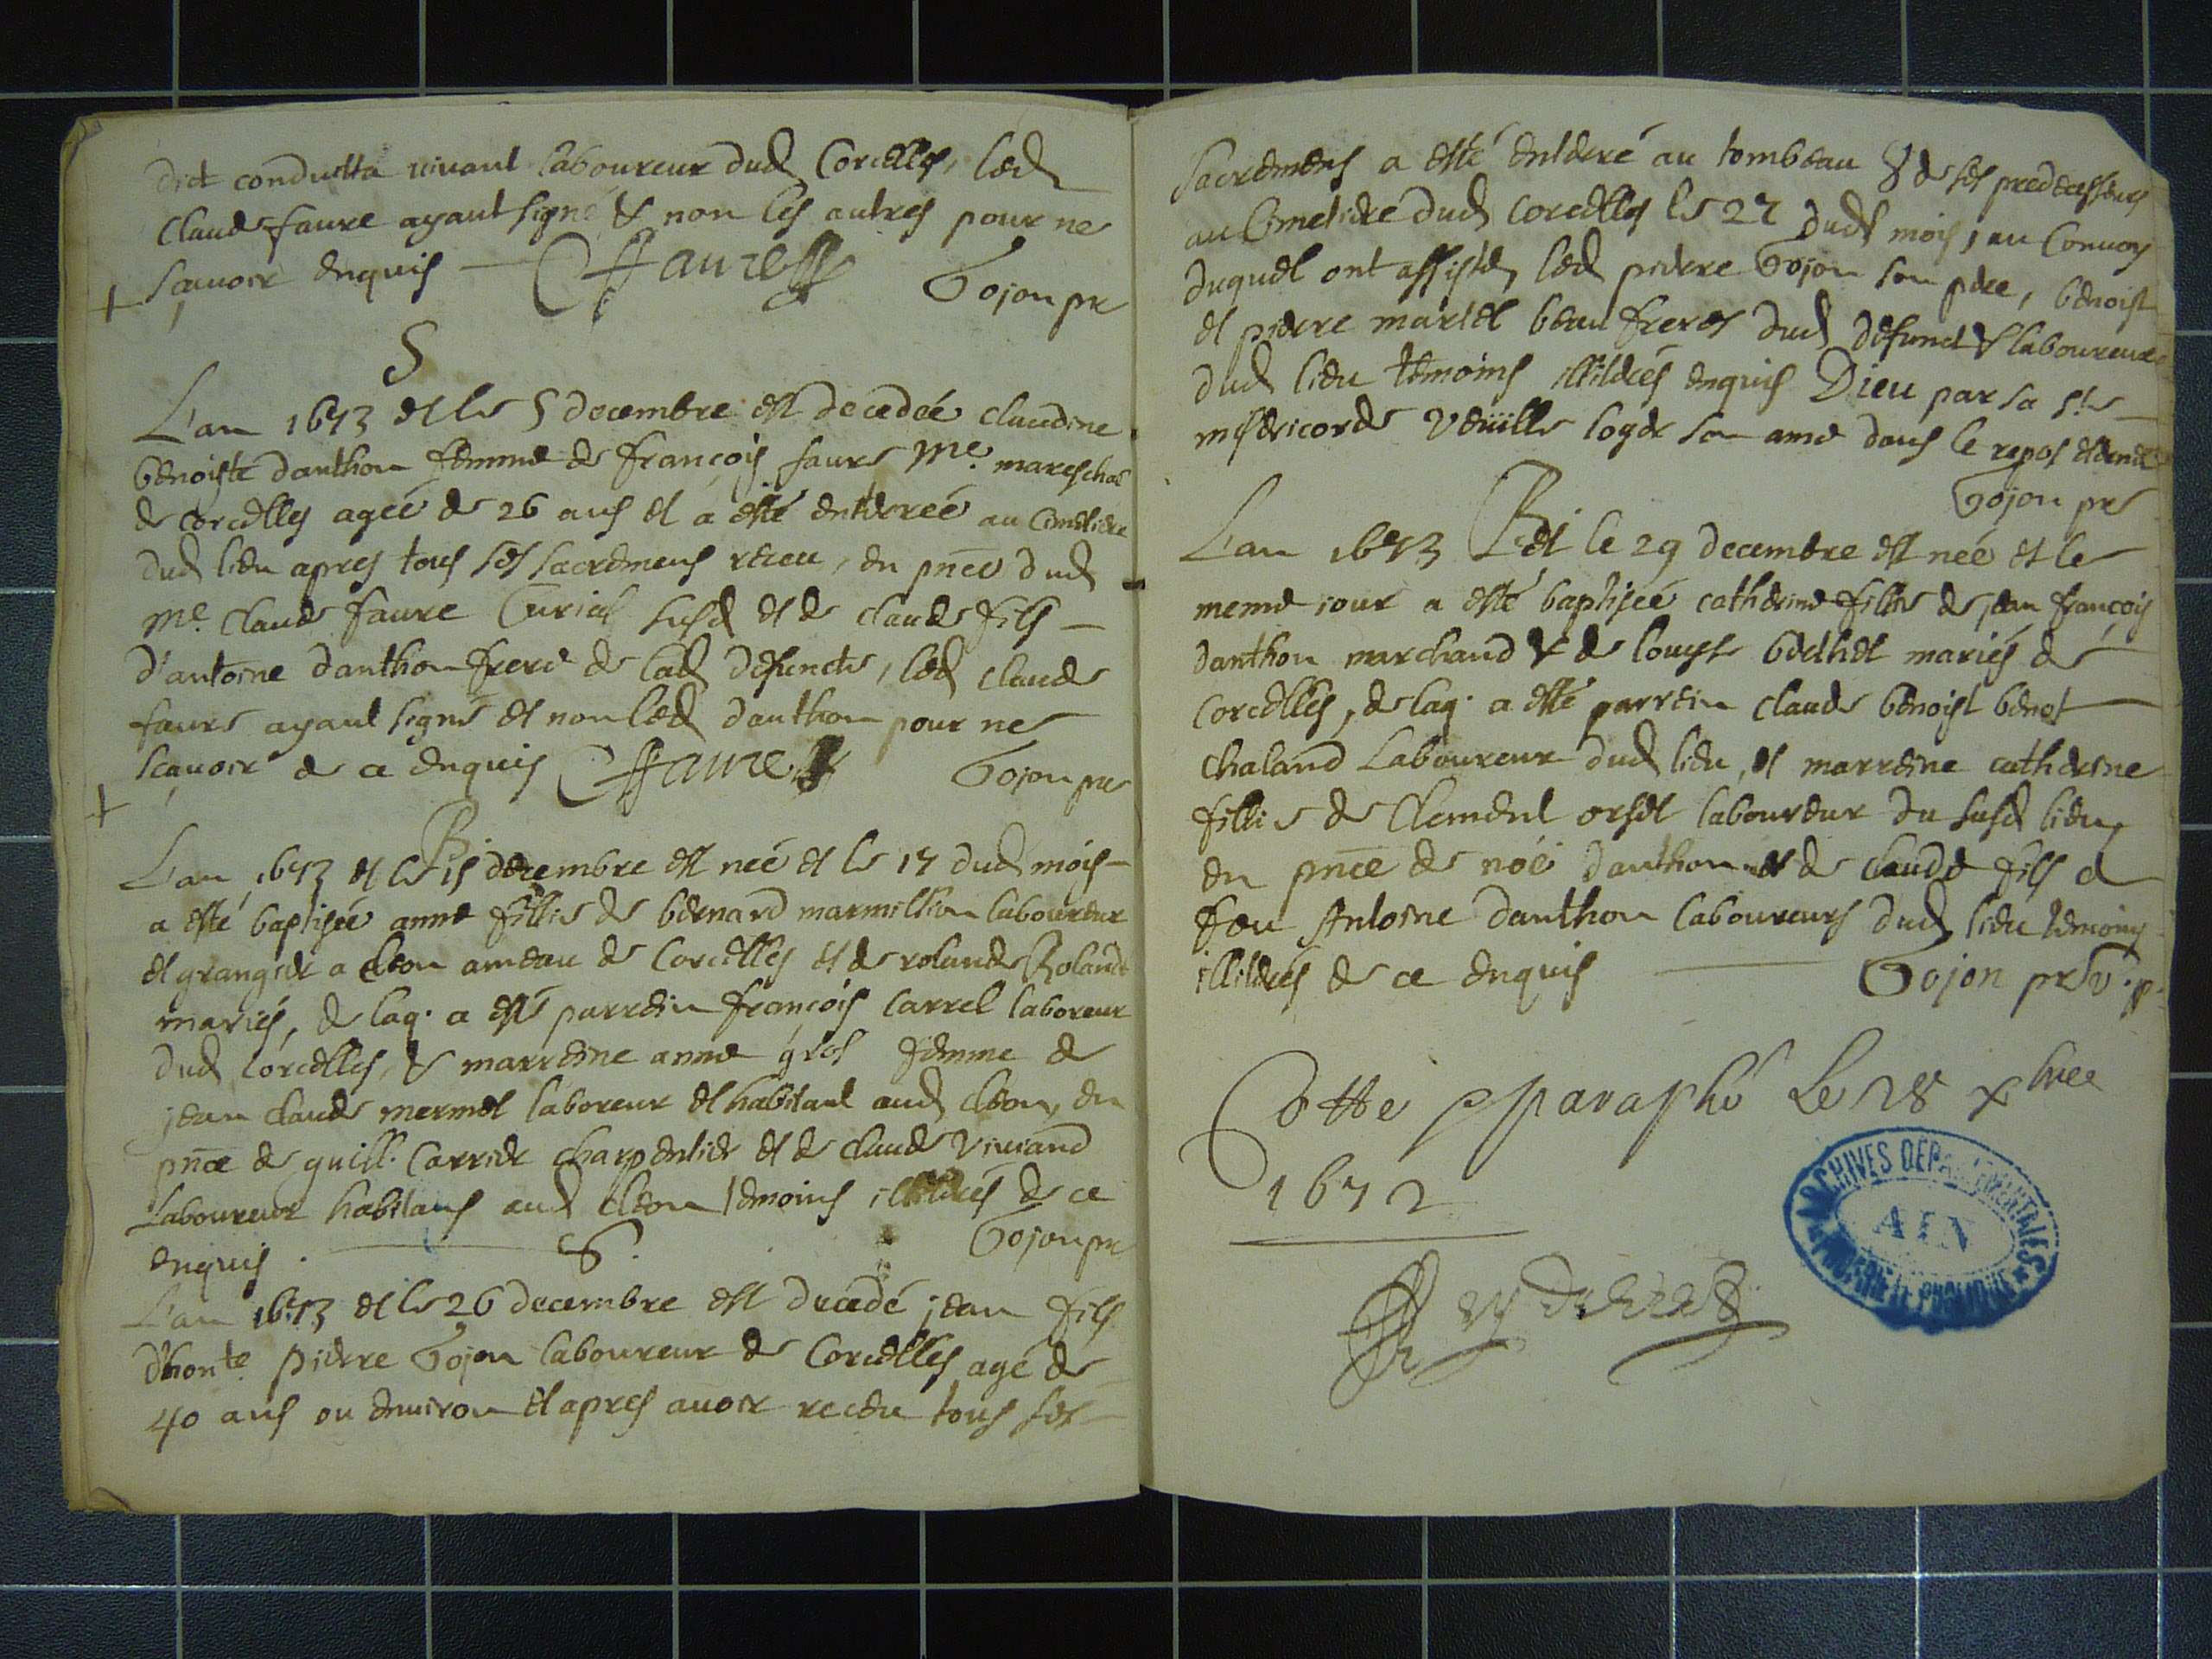 dict conduitta vivant laboureur dud Corcelles, led
Claude faure ayant signé & non les autres pour ne
sçauoir enquis — CFaure Gojon pre
S
L'an 1673 et le 5 decembre est decedeé claudine
benoiste danthon femme de françois faure Me mareschal
de corcelles ageé de 26 ans et a esté enterreé au Cimetiere
dud lieu apres tous ses sacremens receu, en pnce dud
me. Claude faure Curial susd et de claude fils —
d'antoine danthon frere de lad defuncte, led claude
faure ayant signé et non led danthon pour ne
sçauoir de ce enquis CFaure Gojon pre
B
L'an 1673 et le 15 decembre est neé et le 17 dud mois —
a esté baptiseé anne fillie de bernard marmillion laboureur
et granger a cleon ameau de Corcelles et de rolande Roland
mariés, de laq. a esté parrein françois carrel laboreur
dud corcelles, & marreine anne gros femme de
jean claude mermet laboreur et habitant aud cleon, en
pnce de guill. Carrier charpentier et de claude Viviand
Laboureur habitans aud cleon temoins illitérés de ce
enquis. — Gojon pre
S.
L'an 1673 et le 26 decembre est decedé jean fils
d'honte. pierre Gojon laboureur de Corcelles agé de
40 ans ou environ et apres auoir receu tous ses —
Sacremens a esté enterré au tombeau de ses predecesseurs
au Cimetiere dud corcelles le 27 dud mois, au Convoy
duquel ont assisté, led pierre Gojon son pere, benoist
et pierre martel beau freres dud defunct & laboureurs
dud lieu témoins illitérés enquis Dieu par sa ste
misericorde veüille loger son ame dans le repos eternel
Gojon pre
B
L'an 1673 et le 29 decembre est neé et le
meme iour a esté baptiseé catherine fillie de jean françois
danthon marchand & de louyse bethet mariés de
Corcelles, de laq. a esté parrein claude benoist benet —
chaland Laboureur dud lieu, et marreine catherine
fillie de Clement orset laboureur du susd lieu,
en pnce de noé danthon et de claude fils de
feu Antoine danthon laboureurs dud lieu temoins
illitérés de ce enquis — Gojon pre
Cotte pparaphé Le 28 xbre
1672
ARCHIVES DEPARTEMENTALES
AIN